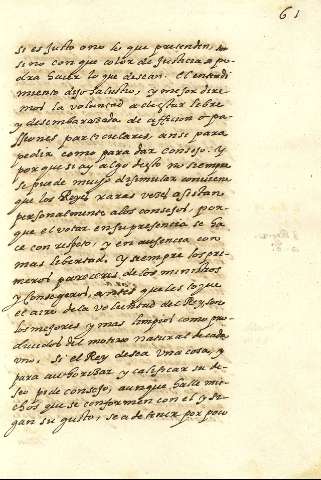 61
si es justo o no lo que pretenden, 
sino con que color de Justicia se po
dra hacer lo que desean. el entendi
miento dijo Salustio, y mejor dire
mos la voluntad a de estar libre
y desembarazada de afficion o pa
ssiones particulares ansi para
pedir como para dar consejo. Y
porque si ay algo desto no siempre
se puede mucho disimular conviene
que los Reyes raras vezes asistan
personalmente a los consejos, por
que el votar en su presencia se ha
ce con respeto, y en ausencia con
mas libertad. Y siempre los pri
meros pareceres de los ministros
y consegeros, antes que les toque
el aire de la voluntad del Rey, son
los mejores y mas limpios como pro
ducidos del motivo natural de cada
uno. Si el Rey desea una cosa, y
para authorizar y calificar su de
seo pide consejo, aunque halle mu
chos que se conformen con el y si
gan su gusto, se a de tener por poco